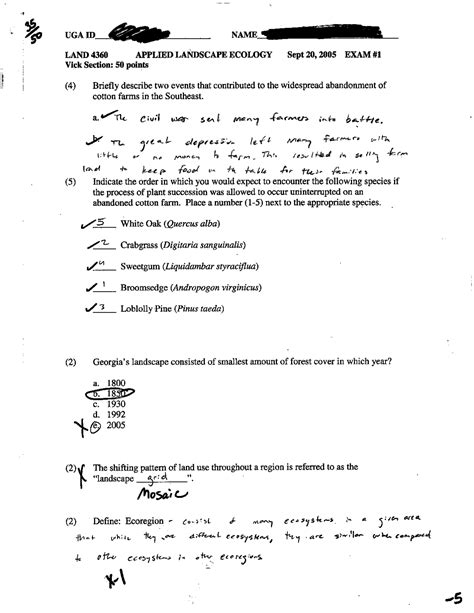 45/50
UGA ID NAME
LAND 4360 APPLIED LANDSCAPE ECOLOGY Sept 20, 2005 EXAM #1
Vick Section: 50 points
(4) Briefly describe two events that contributed to the widespread abandonment of
cotton farms in the Southeast.
a. The civil war sent many farmers into battle.
b. The great depression left many farmers with
little or no money to farm. This resulted in selling farm
land to keep food on the table for their families
(5) Indicate the order in which you would expect to encounter the following species if
the process of plant succession was allowed to occur uninterrupted on an
abandoned cotton farm. Place a number (1-5) next to the appropriate species.
5 White Oak (Quercus alba)
2 Crabgrass (Digitaria sanguinalis)
4 Sweetgum (Liquidambar styraciflua)
1 Broomsedge (Andropogon virginicus)
3 Loblolly Pine (Pinus taeda)
(2) Georgia's landscape consisted of smallest amount of forest cover in which year?
a. 1800
b. 1850
c. 1930
d. 1992
e. 2005
(2) The shifting pattern of land use throughout a region is referred to as the
"landscape grid".
Mosaic
(2) Define: Ecoregion - consist of many ecosystems in a given area
that while they are different ecosystems, they are similar when compared
to other ecosystems in other ecoregions
-1
-5